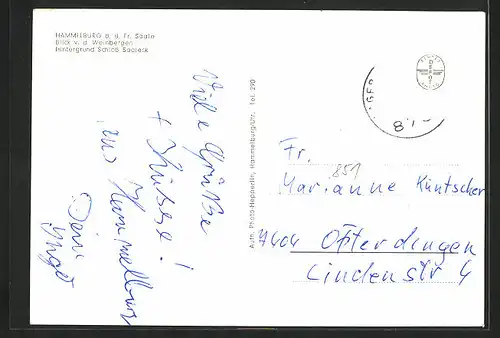 HAMMELBURG a. d. Fr. Saale
Blick v. d. Weinbergen
Hintergrund Schloß Saaleck
Viele Grüße
+ Küsse!
aus Hammelburg
Dein
Autn. Photo-Hepperlin, Hammelburg/Ufr. Tel. 290
8
Fr.
851
Marianne Küntscher
7404 Ofterdingen
Lindenstr 4